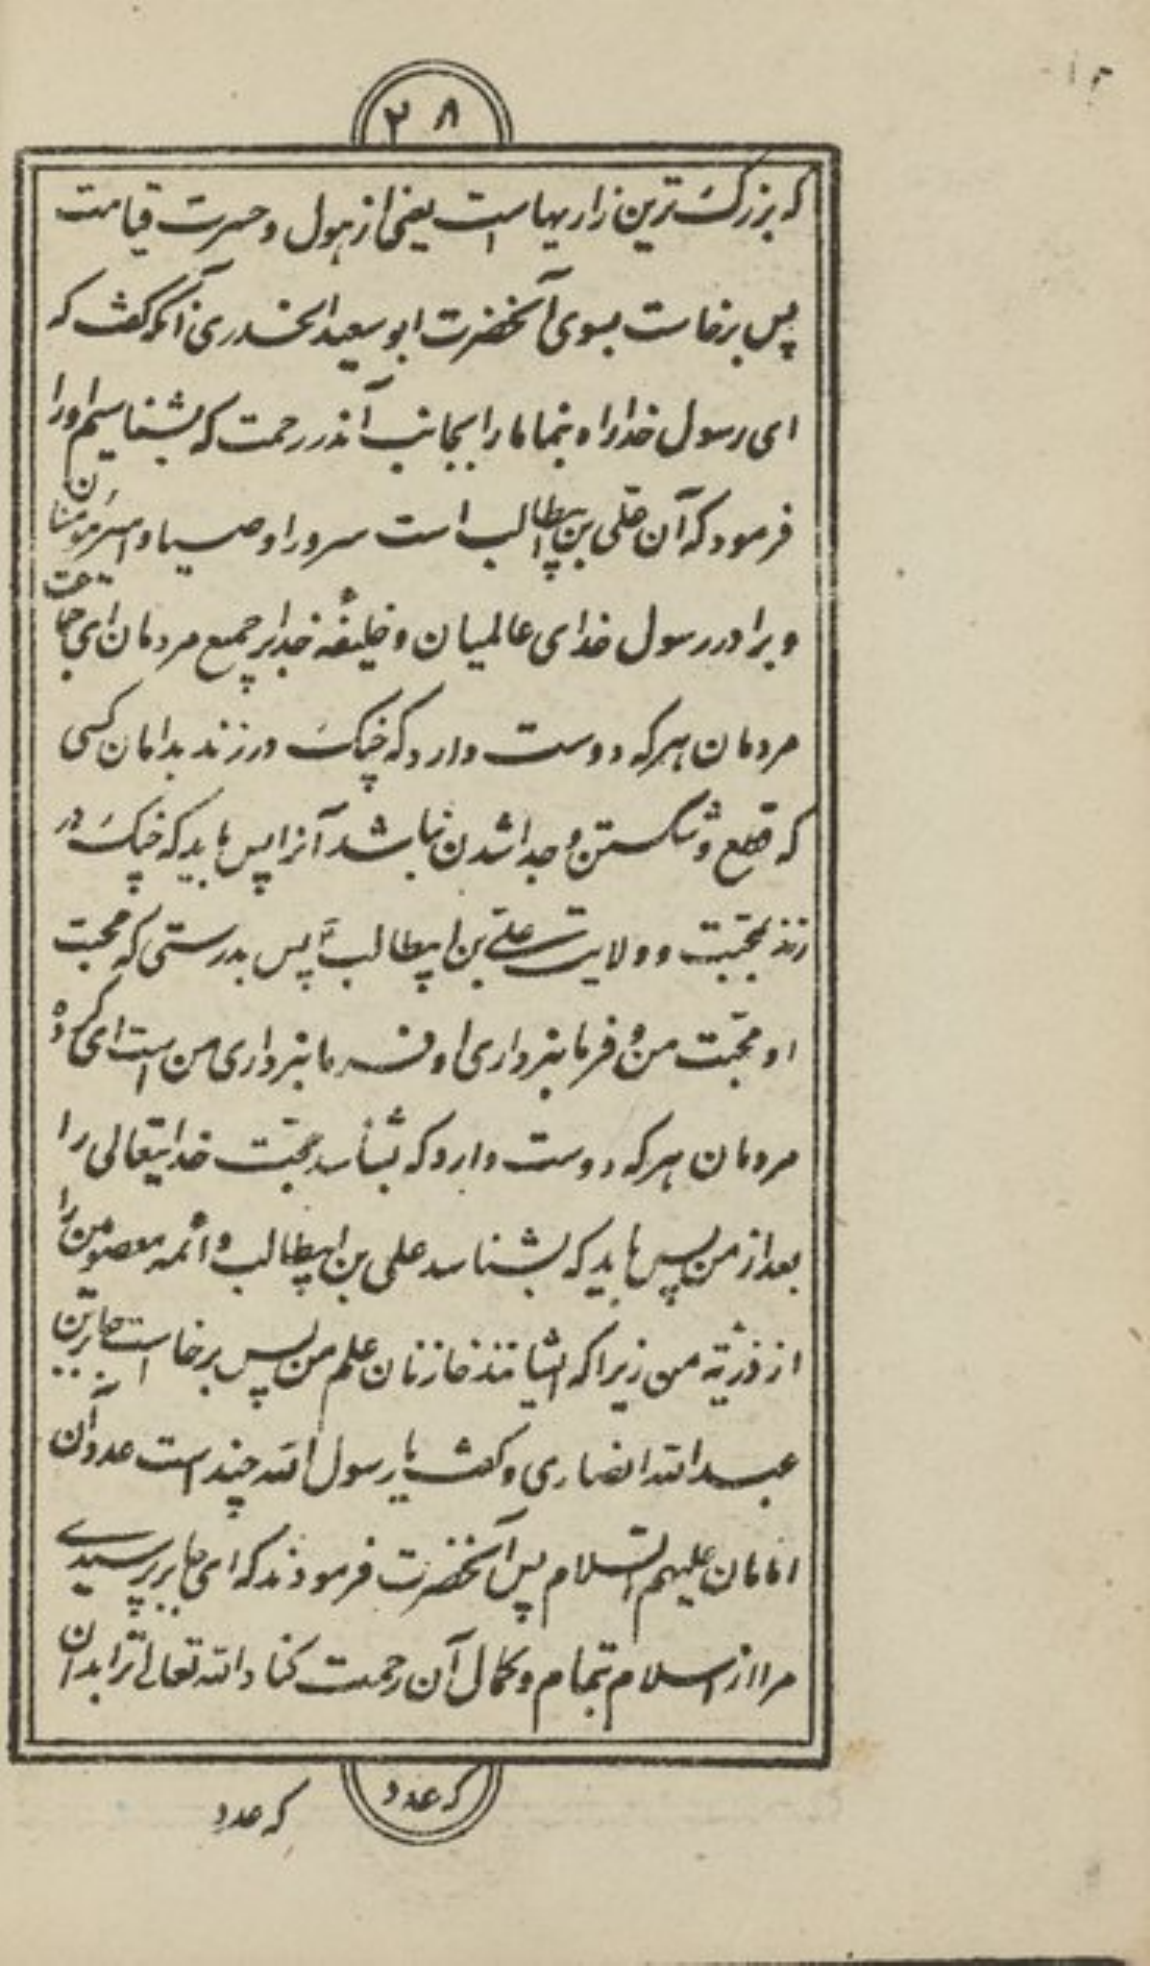 ۲۸
که بزرگ ترین زاریهاست یعنی از هول و حسرت قیامت
پس برخاست بسوی آنحضرت ابو سعید الخدری آنکه گفت که
ای رسول خدا راه بنما ما را بجانب آندر رحمت که بشناسیم او را
فرمود که آن علی بن ابیطالب است سرور اوصیا و امیر مؤمنان
و برادر رسول خدای عالمیان و خلیفه خدا بر جمیع مردمان ای جماعت
مردمان هر که دوست دارد که چنگ در زند بدامان کسی
که قطع و شکستن و جدا شدن نباشد آنرا پس باید که چنگ در
زند بمحبت و ولایت علی بن ابیطالب پس بدرستی که محبت
او محبت من و فرمانبرداری او فرمانبرداری من است ای گروه
مردمان هر که دوست دارد که بشناسد محبت خدایتعالی را
بعد از من پس باید که بشناسد علی بن ابیطالب و ائمه معصومین را
از ذریّه من زیرا که ایشانند خازنان علم من پس برخاست جابر بن
عبد الله انصاری و گفت یا رسول الله چند است عدد آن
امامان علیهم السلام پس آنحضرت فرمودند که ای جابر پرسیدی
مرا از اسلام بتمام و کمال آن رحمت کناد الله تعالی ترا بدان
که عدد
که عدد